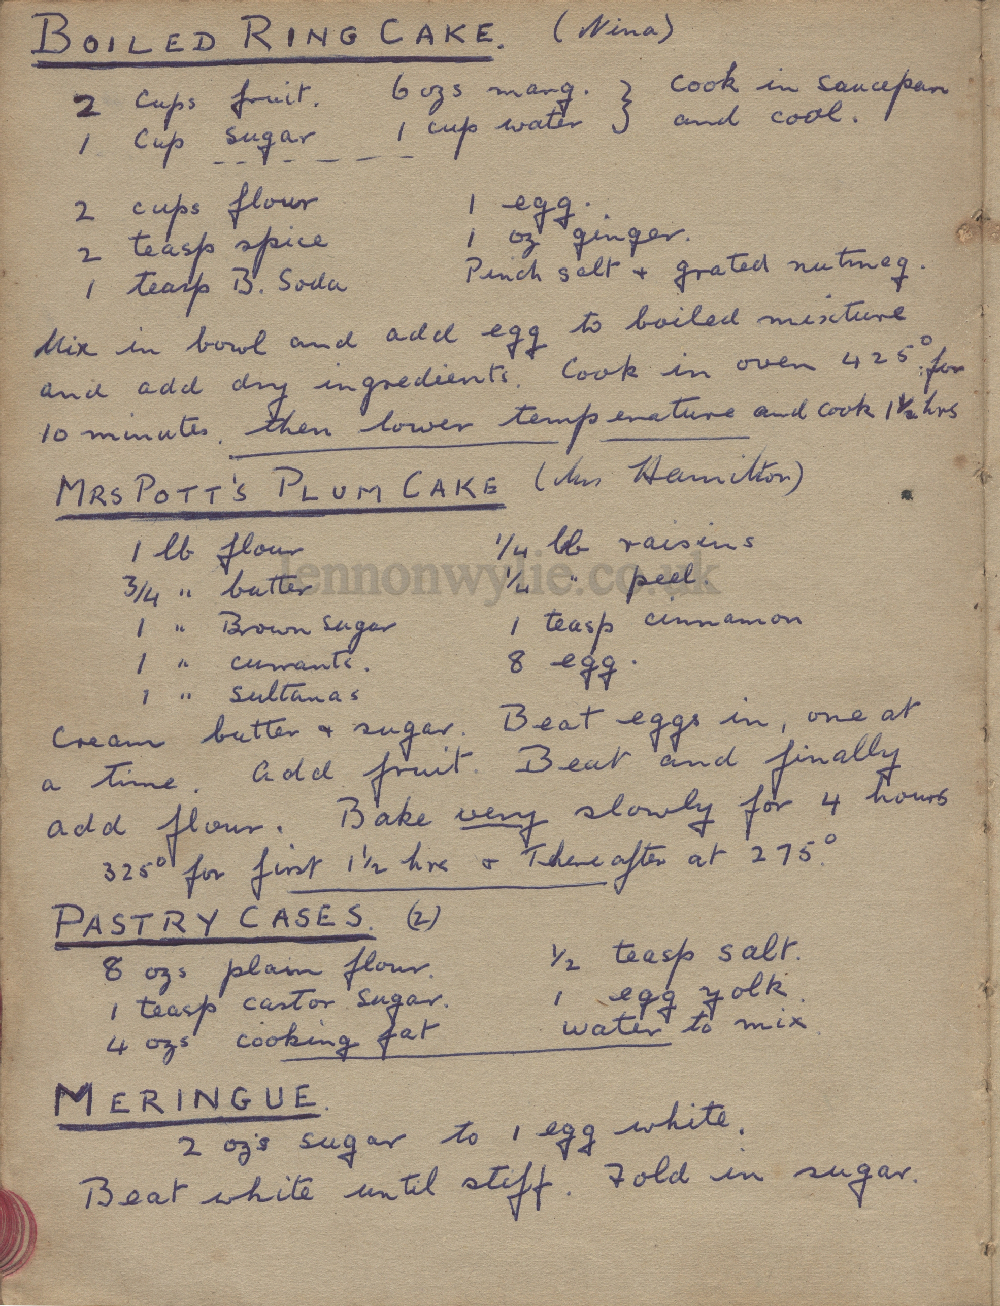 BOILED RING CAKE. (Nina)
2 Cups fruit. 6 ozs marg. } Cook in saucepan
1 Cup sugar 1 cup water } and cool.
2 cups flour 1 egg.
2 teasp spice 1 oz ginger.
1 teasp B. Soda Pinch salt + grated nutmeg.
Mix in bowl and add egg to boiled mixture
and add dry ingredients. Cook in oven 425° for
10 minutes. then lower temperature and cook 1½ hrs
MRS POTT'S PLUM CAKE (Mrs Hamilton)
1 lb flour 1/4 lb raisins
3/4 " butter 1/4 " peel.
1 " Brown sugar 1 teasp cinnamon
1 " currants. 8 egg.
1 " sultanas
Cream butter + sugar. Beat eggs in, one at
a time. Add fruit. Beat and finally
add flour. Bake very slowly for 4 hours
325° for first 1½ hrs + Thereafter at 275°.
PASTRY CASES. (2)
8 ozs plain flour. ½ teasp salt.
1 teasp castor sugar. 1 egg yolk.
4 ozs cooking fat water to mix
MERINGUE.
2 oz's sugar to 1 egg white.
Beat white until stiff. Fold in sugar.
lennonwylie.co.uk